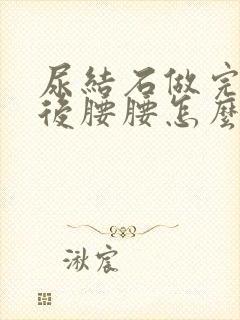 尿結石做完
後腰腰怎麼
湫宸